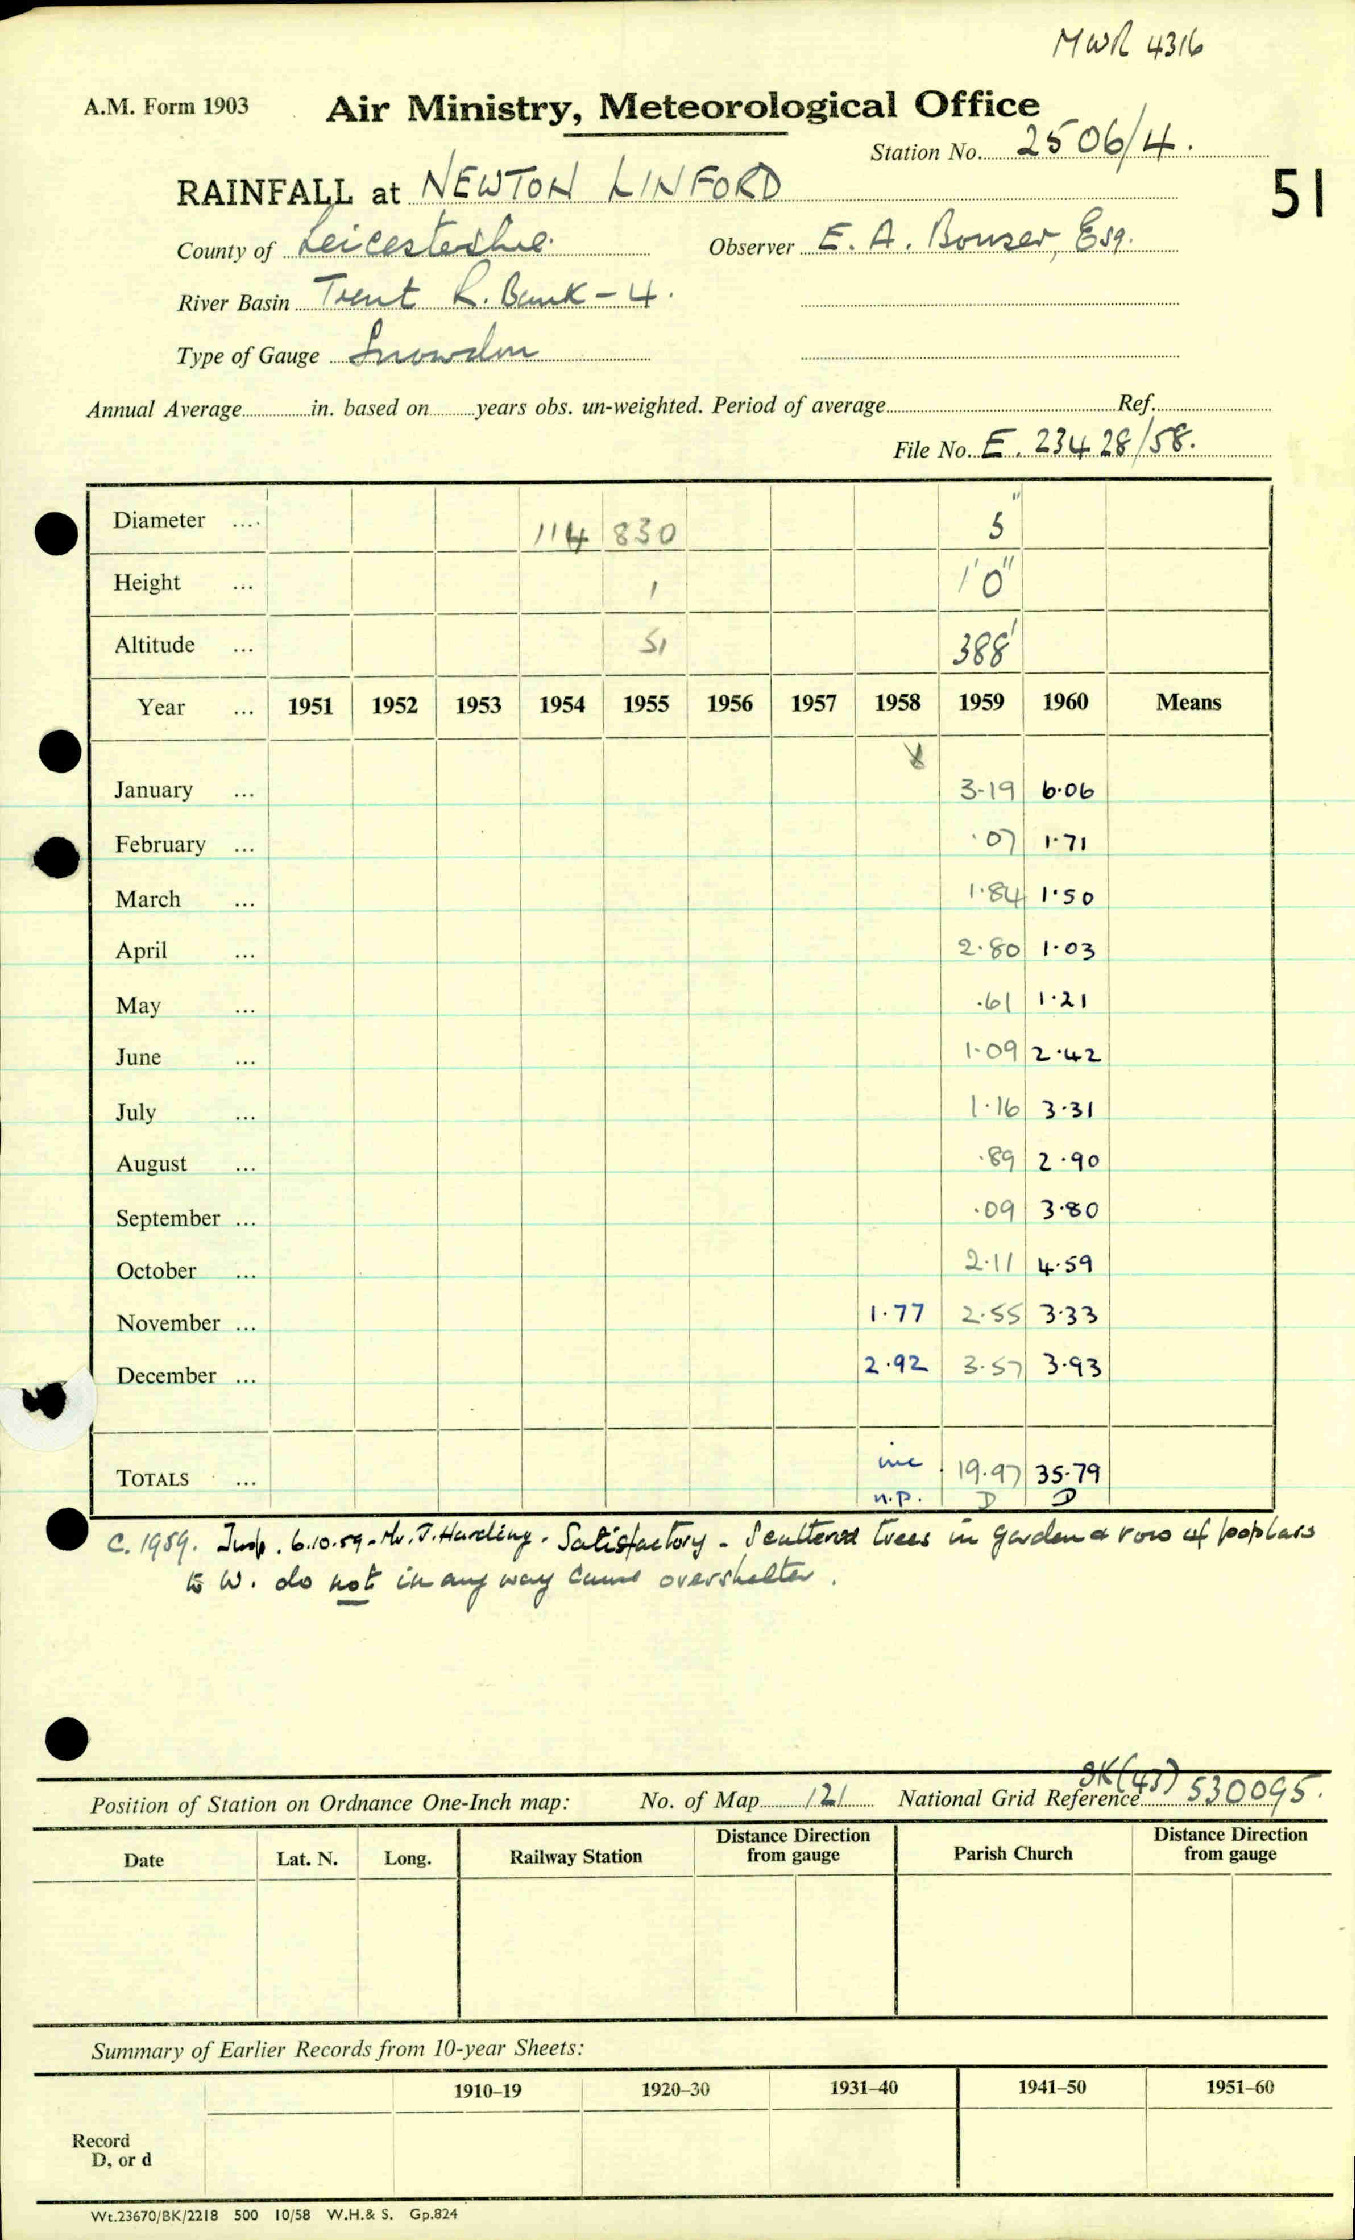 MWR 4316
A.M. Form 1903 Air Ministry, Meteorological Office
Station No. 2506/4.
RAINFALL at NEWTON LINFORD 51
County of Leicestershire. Observer E. A. Bowser, Esq.
River Basin Trent R. Bank - 4.
Type of Gauge Snowdon
Annual Average in. based on years obs. un-weighted. Period of average Ref.
File No. E. 23428/58.
Diameter .... 114 830 5"
Height ... 1 1'0"
Altitude ... 51 388'
Year ... 1951 1952 1953 1954 1955 1956 1957 1958 1959 1960 Means
January ... 3.19 6.06
February ... .07 1.71
March ... 1.84 1.50
April ... 2.80 1.03
May ... .61 1.21
June ... 1.09 2.42
July ... 1.16 3.31
August ... .89 2.90
September ... .09 3.80
October ... 2.11 4.59
November ... 1.77 2.55 3.33
December ... 2.92 3.57 3.93
TOTALS ... inc 19.97 35.79
n.p. D D
C. 1959. Insp. 6.10.59 - Mr. J. Harding. Satisfactory - Scattered trees in garden & row of poplars
to W. do not in any way cause overshelter.
Position of Station on Ordnance One-Inch map: No. of Map 121 National Grid Reference SK(43) 530095.
Date Lat. N. Long. Railway Station Distance Direction from gauge Parish Church Distance Direction from gauge
Summary of Earlier Records from 10-year Sheets:
1910–19 1920–30 1931–40 1941–50 1951–60
Record
D, or d
Wt.23670/BK/2218 500 10/58 W.H.& S. Gp.824